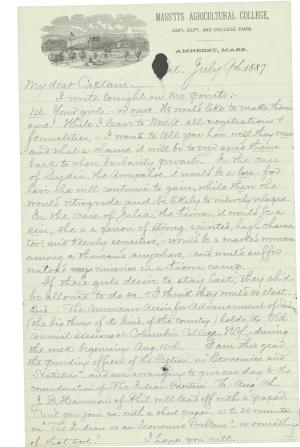 MASS'TTS AGRICULTURAL COLLEGE,
AGR'L DEPT. AND COLLEGE FARM.
AMHERST, MASS.
Sat. July 9th 1887
My dear Captain
I write tonight on two points:
1st Your girls - or ours. We would like to make them
ours. While I leave to Mr. A. all negotiations &
formalities, - I want to tell you how well they
and what a shame it will be to send them
back to where barbarity prevails. In the case
of Lydia, the Arapahoe, it would be a loss, for
here she will continue to gain, while there she
would retrograde and be likely to
In the case of Julia, the Kiowa, it would be a
sin; she is a person of strong spirit, high charac-
ter and keenly sensitive, - would be a marked woman
among a thousand anywhere, - and would suffer
miseries in a Kiowa camp.
If these girls desire to stay East, they sh'd
be allowed to do so. & I think they would so elect.
2nd. The American Assn for Advancement of
(the big thing of its kind, of the country) holds its
annual sessions at Columbia College, N.Y., during
the week beginning Aug. 10th. I am this year
the presiding officer of the Section on "Economics and
Statistics" and am arranging to give one day to the
consideration of The Indian Question
J. B. Harrison of Phil. will lead off with a paper.
Can't you join us with a short paper - 10 to 20 minutes,
on "The Indian as an Economic Problem" or something
of that sort? I hope you will.